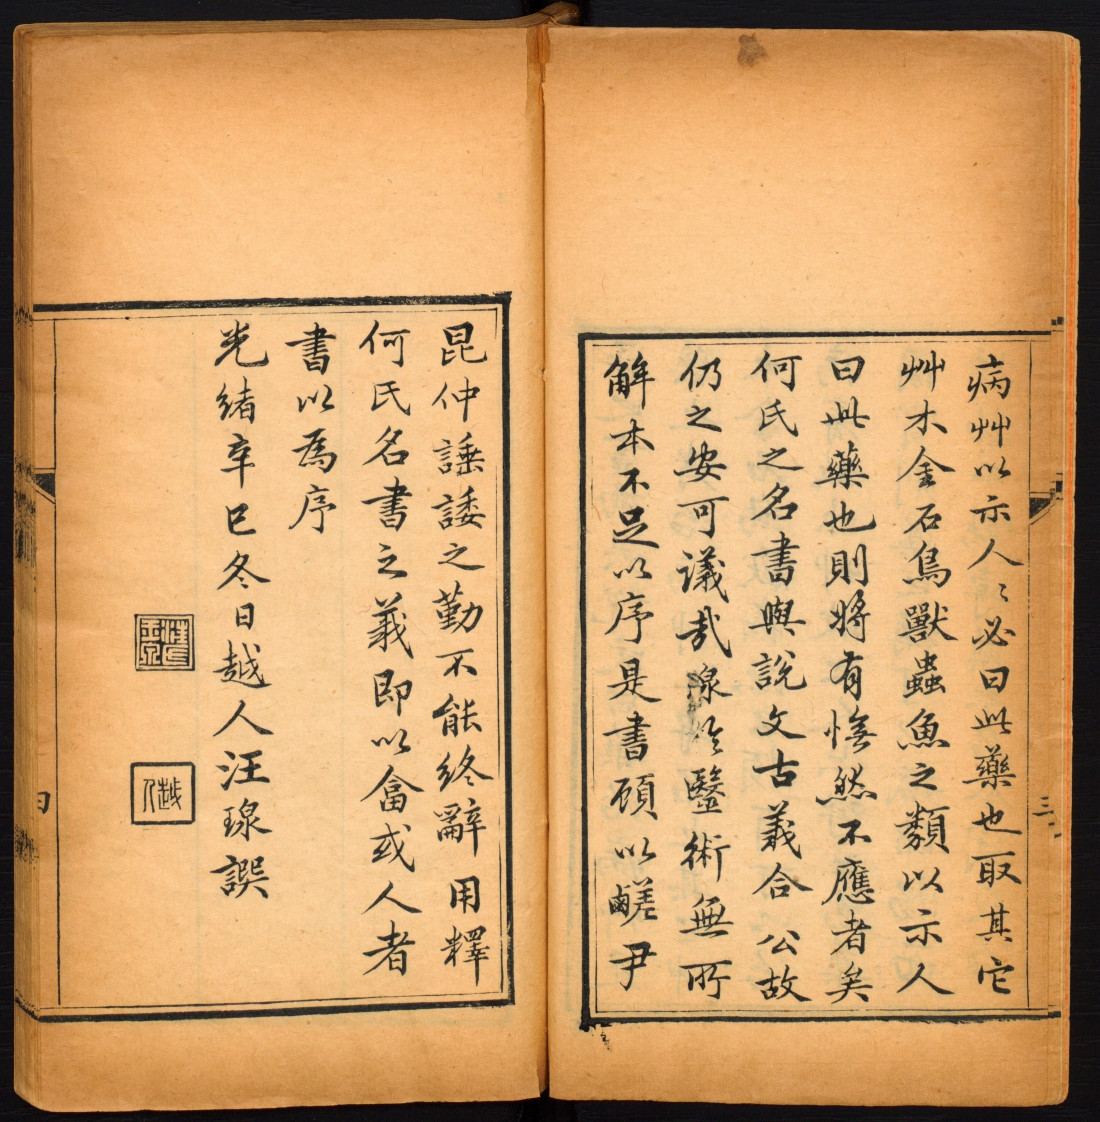 病艸以示人〻必曰此藥也取其它
艸木金石鳥獸蟲魚之類以示人
曰此藥也則將有憮然不應者矣
何氏之名書與說文古義合公故
仍之安可議哉瑔於醫術無所
解本不足以序是書頋以鹺尹
三
昆仲諈諉之勤不能終辭用釋
何氏名書之義即以畣或人者
書以為序
光緒辛巳冬日越人汪瑔譔
越人